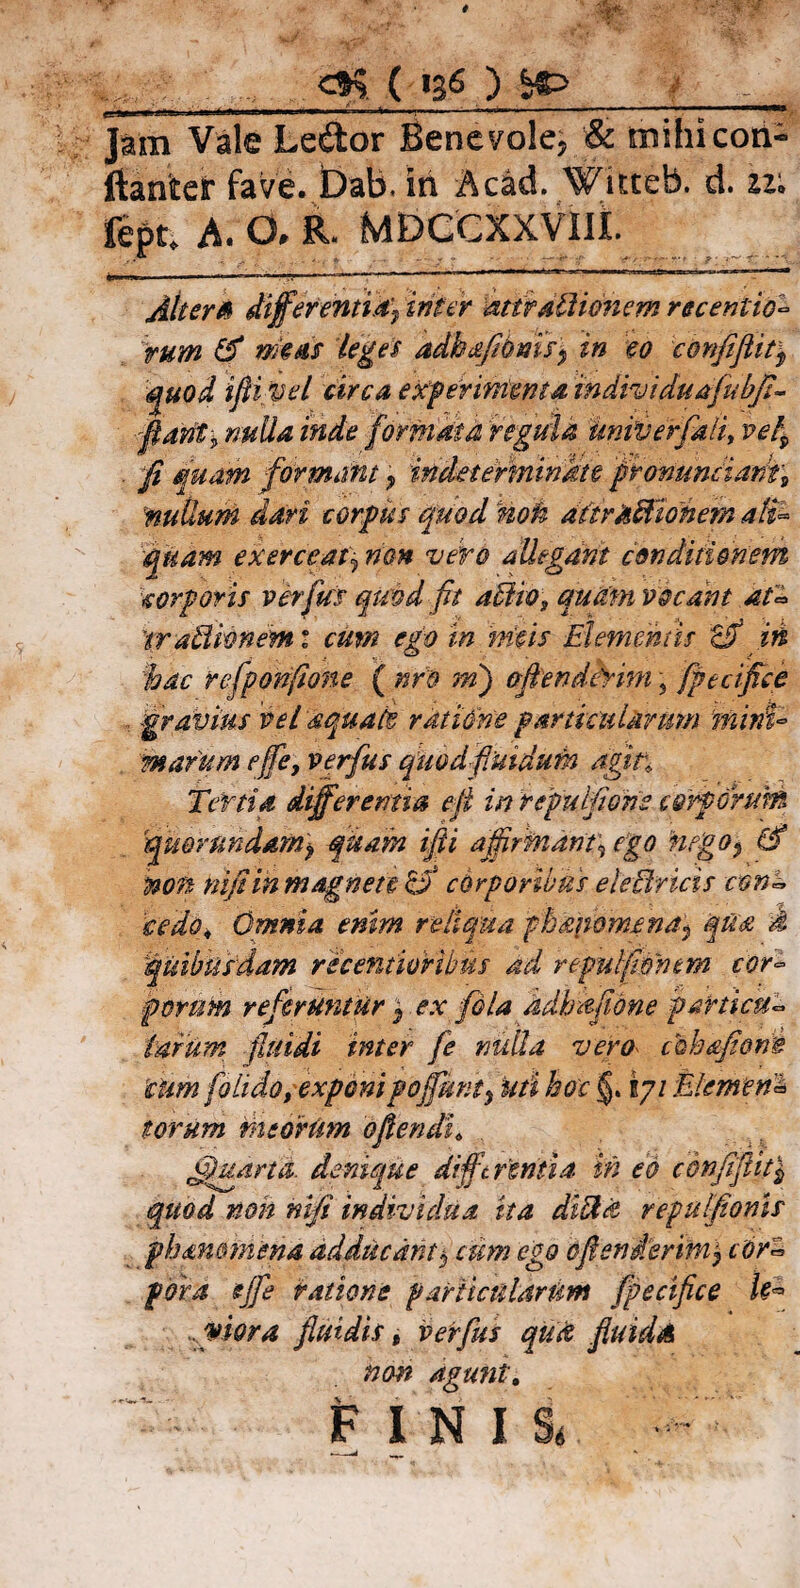 ( 136 )
Jam Vale Lector Benevole, & mihi con-
ſtanter fave. Dab. in Acad. Witteb. d. 22.
ſept. A. O. R. MDCCXXVIII.
Altera differentia, inter attractionem recentio-
rum & meas leges adhæſionis, in eo conſiſtit,
quod iſti vel circa experimenta individua ſubſi-
ſtant, nulla inde formata regula univerſali, vel,
ſi quam formant, indeterminate pronunciant,
nullum dari corpus quod non attractionem ali-
quam exerceat, non vero allegant conditionem
corporis verſus quod fit actio, quam vocant at-
tractionem: cum ego in meis Elementis & in
hac reſponſione ( nro m) oſtenderim, ſpecifice
gravius vel æquale ratione particularum mini-
marum eſſe, verſus quod fluidum agit.
Tertia differentia eſt in repulſione corporum
quorundam, quam iſti affirmant, ego nego, &
non niſi in magnete & corporibus electricis con-
cedo. Omnia enim reliqua phænomena, quæ a
quibusdam recentioribus ad repulſionem cor-
porum referuntur, ex ſola adhæſione particu-
larum fluidi inter ſe nulla vero cohæſione
cum ſolido, exponi poſſunt, uti hoc §. 171 Elemen-
torum meorum oſtendi.
Quarta denique differentia in eo conſiſtit,
quod non niſi individua ita dictæ repulſionis
phænomena adducant, cum ego oſtenderim, cor-
pora eſſe ratione particularum ſpecifice le-
viora fluidis, verſus quæ fluida
non agunt.
FINIS.